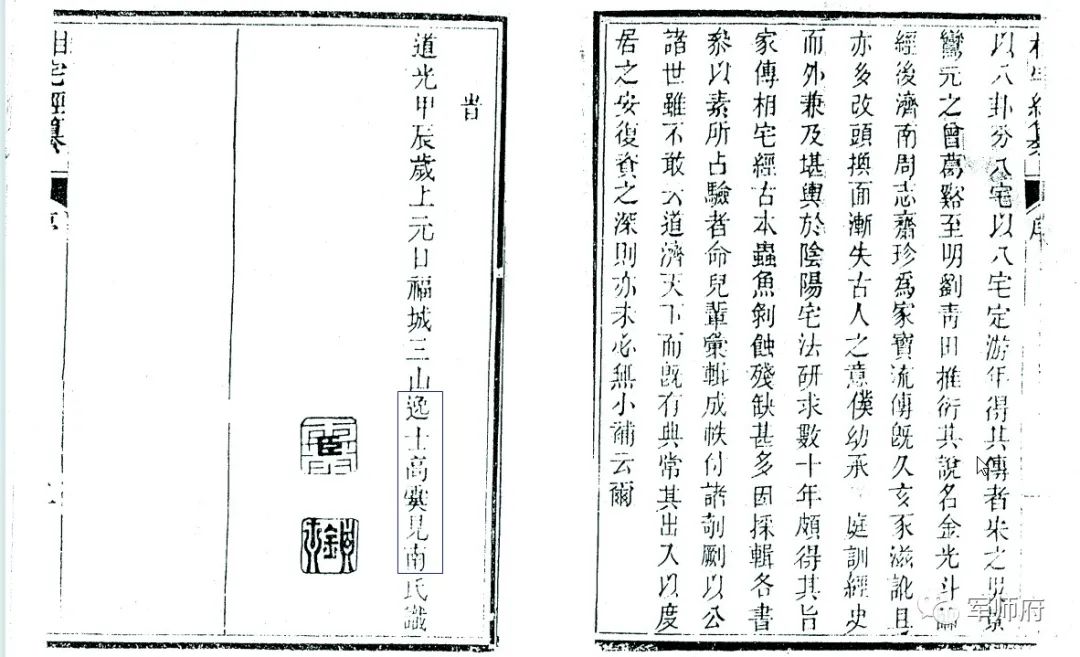 相宅經纂 序
以八卦分八宅以八宅定游年得其傳者宋之吳景
鸞元之曾葛谿至明劉青田推衍其說名金光斗臨
經後濟南周志齋珍爲家寶流傳旣久亥豕滋訛且
亦多改頭換面漸失古人之意僕幼承 庭訓經史
而外兼及堪輿於陰陽宅法研求數十年頗得其旨
家傳相宅經古本蟲魚剝蝕殘缺甚多因採輯各書
叅以素所占驗者命兒輩彙輯成帙付諸剞劂以公
諸世雖不敢云道濟天下而旣有典常其出入以度
居之安復資之深則亦未必無小補云爾
旹
道光甲辰歲上元日福城三山逸士高奭見南氏識
相宅經纂 序
军师府